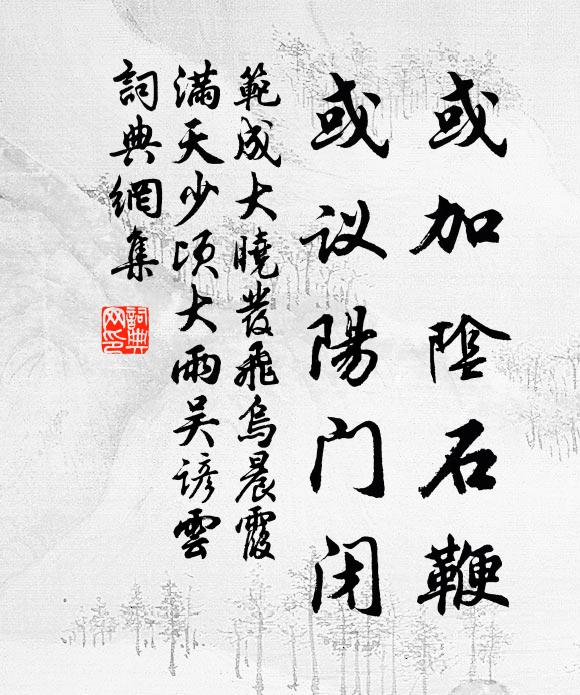 或加陰石鞭
或议陽门闭
範成大曉發飛烏晨霞
滿天少頃大雨吴諺雲
詞典網集
詞典
网印